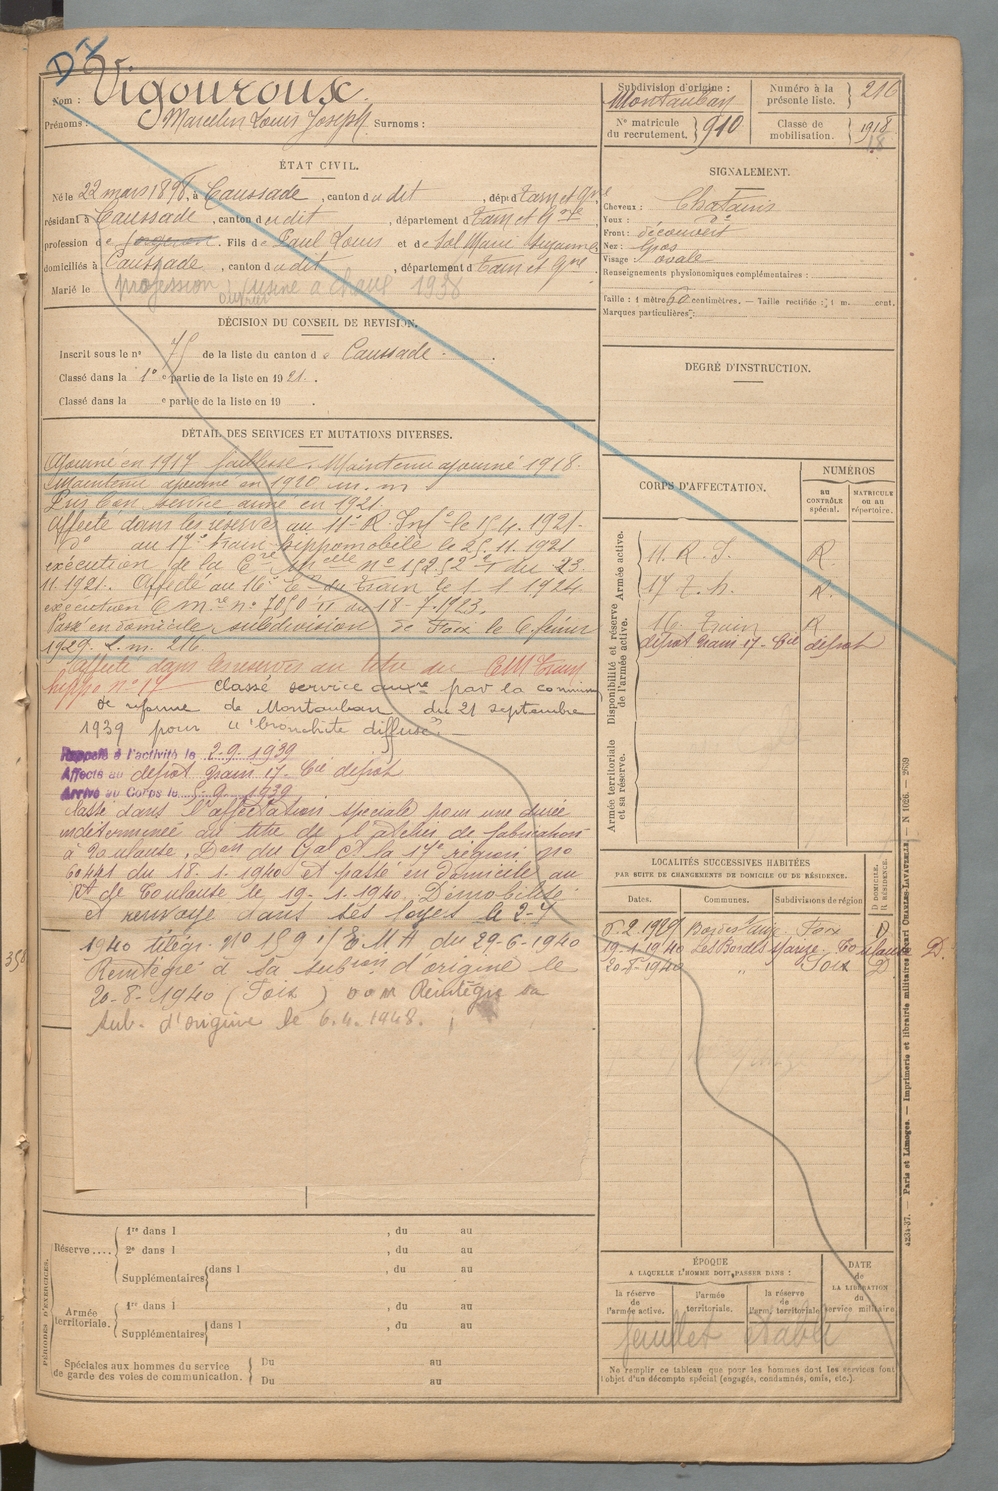 D I
Nom : Vigouroux
Prénoms : Marcelin Louis Joseph Surnoms :
ÉTAT CIVIL.
Né le 22 mars 1898, à Caussade, canton d u dit, dépt d Tarn et Gne
résidant à Caussade, canton d u dit, département d Tarn et Gne
profession d e forgeron. Fils d e Paul Louis et d e Sol Marie Suzanne
domiciliés à Caussade, canton d u dit, département d Tarn et Gne
Marié le profession ouvrier usine à chaux 1938
DÉCISION DU CONSEIL DE REVISION.
Inscrit sous le n° 75 de la liste du canton d e Caussade.
Classé dans la 1e partie de la liste en 1921.
Classé dans la e partie de la liste en 19 .
DÉTAIL DES SERVICES ET MUTATIONS DIVERSES.
Ajourné en 1917 faiblesse. Maintenu ajourné 1918.
Maintenu ajourné en 1920 m. m
Pris bon service armé en 1921.
Affecté dans les réserves au 11e R. Infie le 15.4.1921.
do au 17e train hippomobile le 25.11.1921
exécution de la Cre Mlle n° 15252 du 23.
11.1921. Affecté au 16e Er du train le 1.1.1924.
exécution C mre n° 7050 II du 18-7.1923.
Passé en domicile subdivision de Foix le 6 février
1929. L.m. 216.
Affecté dans les réserves au titre du CM Train
hippo n° 17 classé service auxre par la commion
de réforme de Montauban du 21 septembre
1939 pour "bronchite diffuse". —
Rappelé à l'activité le 2-9-1939
Affecté au dépôt train 17 - Cie dépôt
Arrivé au Corps le 5.9.1939
Classé dans l'affectation spéciale pour une durée
indéterminée au titre de l'atelier de fabrication
à Toulouse. Don du Gal Ct la 17e région no
60441 du 18.1.1940 et passé en domicile au
Rt de Toulouse le 19.1.1940. Démobilisé
et renvoyé dans ses foyers le 2-7
1940 télégr. N° 159 1/E.M.A du 29-6-1940
Réintégré à sa subion d'origine le
20-8-1940 (Foix) Réintégré sa
sub. d'origine le 6.4.1948.
PÉRIODES D'EXERCICES.
Réserve....
1re dans l , du au
2e dans l , du au
Supplémentaires dans l , du au
Armée territoriale.
1re dans l , du au
Supplémentaires dans l , du au
Spéciales aux hommes du service de garde des voies de communication.
Du au
Du au
Subdivision d'origine : Montauban
N° matricule du recrutement. 910
Numéro à la présente liste. 216
Classe de mobilisation. 1918
18
SIGNALEMENT.
Cheveux : Chatains
Yeux : do
Front : découvert
Nez : Gros
Visage : ovale
Renseignements physionomiques complémentaires :
Taille : 1 mètre 60 centimètres. — Taille rectifiée : 1 m. cent.
Marques particulières :
DEGRÉ D'INSTRUCTION.
CORPS D'AFFECTATION.
NUMÉROS
au CONTRÔLE spécial.
MATRICULE ou au répertoire.
Armée active.
Disponibilité et réserve de l'armée active.
Armée territoriale et sa réserve.
11. R. I. R.
17. T. h. R.
16. Train R
dépôt train 17 - Cie dépôt
LOCALITÉS SUCCESSIVES HABITÉES
PAR SUITE DE CHANGEMENTS DE DOMICILE OU DE RÉSIDENCE.
Dates. Communes. Subdivisions de région
D DOMICILE. R RÉSIDENCE.
6.2.1929 Foix D
19.1.1940 Toulouse D.
20-8-1940 " Foix D
ÉPOQUE
A LAQUELLE L'HOMME DOIT PASSER DANS :
la réserve de l'armée active.
l'armée territoriale.
la réserve de l'armée territoriale
DATE de LA LIBÉRATION du service militaire
feuillet établi
Ne remplir ce tableau que pour les hommes dont les services font l'objet d'un décompte spécial (engagés, condamnés, omis, etc.).
4234-37. — Paris et Limoges. — Imprimerie et librairie militaires Henri CHARLES-LAVAUZELLE. — N 1026. — 2639